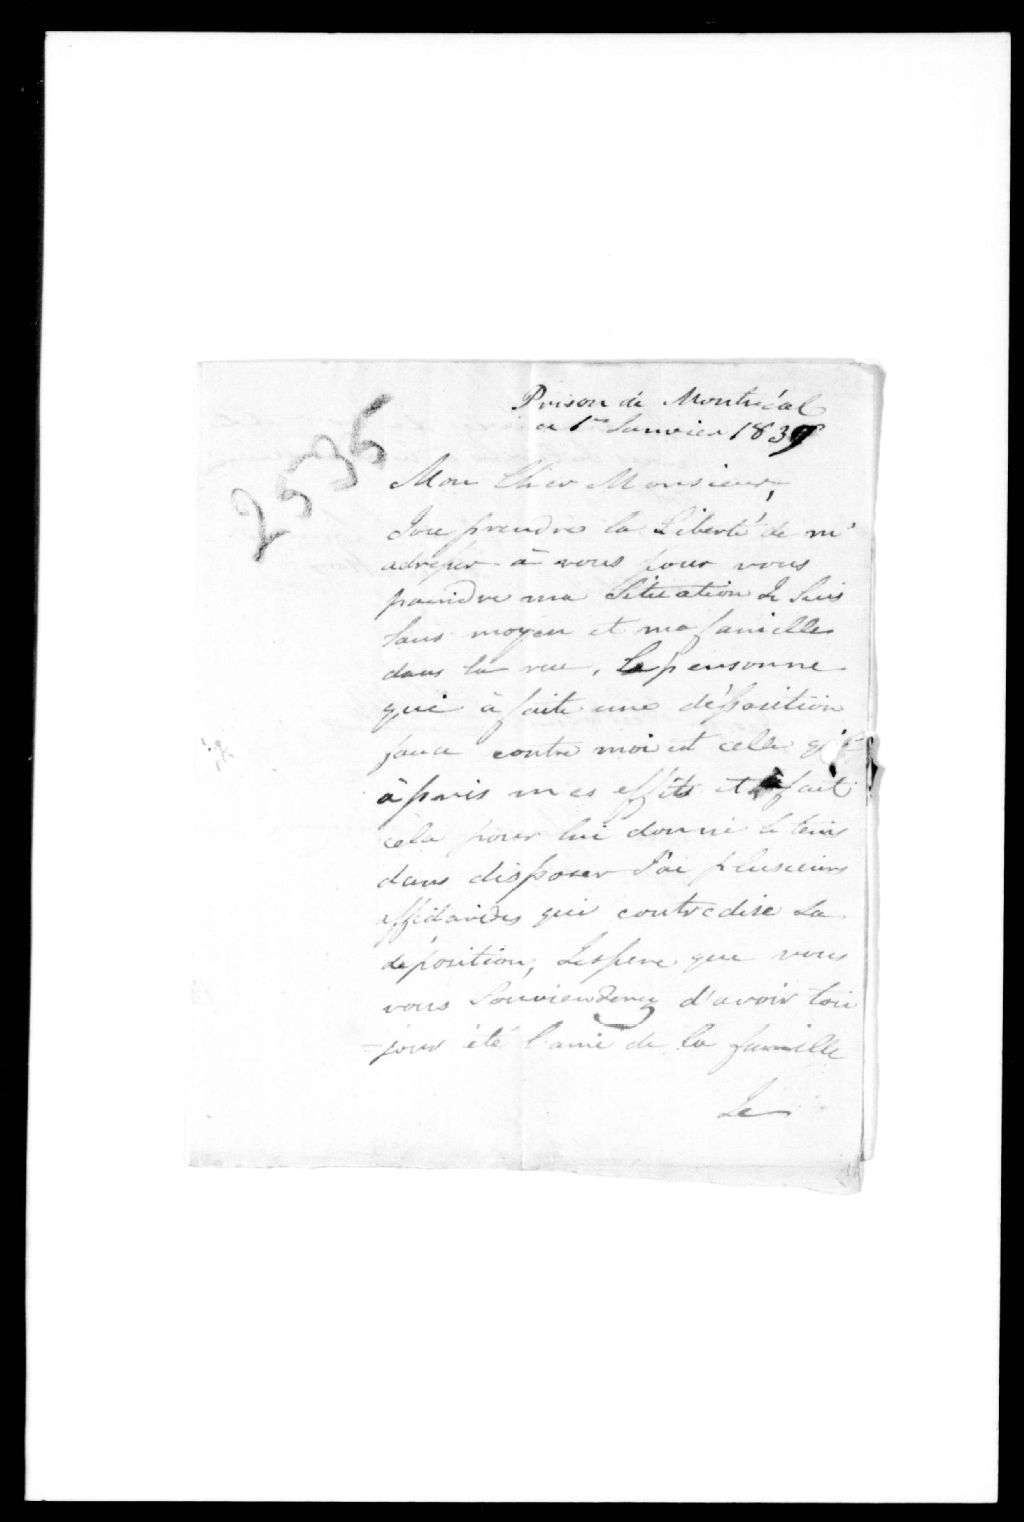 2535
Prison de Montréal
ce 1er Janvier 1839
Mon Cher Monsieur,
J'ose prendre la Liberté de m'
adresser à vous pour vous
paindre ma Situation Je Suis
Sans moyen et ma famille
dans la rue, La personne
qui à faite une déposition
fauce contre moi est celle qui
à pris mes effits et à fait
cela pour lui donné le tems
dans disposer J'ai plusieurs
affidavides qui contredise La
déposition, Jespere que vous
vous Souvienderez d'avoir tou
-jour été l'ami de la famille
Je